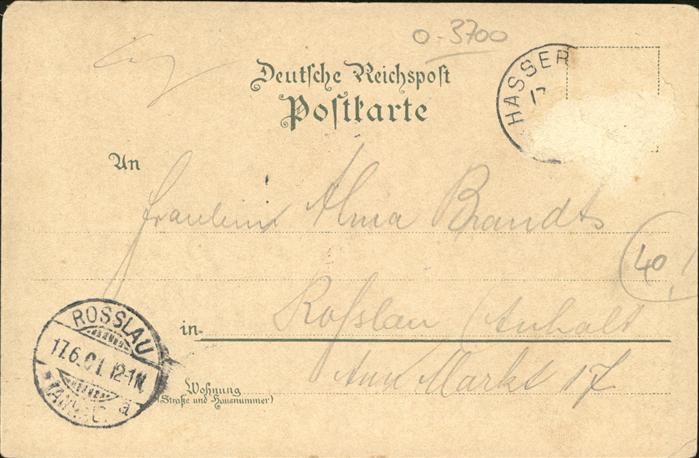 0-3700
Deutsche Reichspost
Postkarte
HASSER
17
An
Fräulein Alma Brandts
40!
Roßlau /Anhalt
in
Am Markt 17
Wohnung
(Straße und Hausnummer)
ROSSLAU
17.6.01.12-1N
a